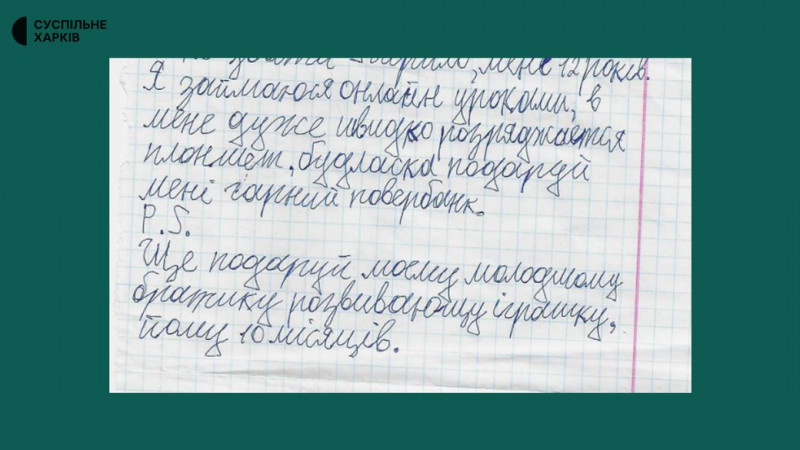 СУСПІЛЬНЕ
ХАРКІВ
мене 12 років.
Я займаюся онлайн уроками, в
мене дуже швидко розряджається
планшет, будласка подаруй
мені гарний повербанк.
P.S.
Ще подаруй моєму молодшому
братику розвивающу іграшку,
йому 10 місяців.